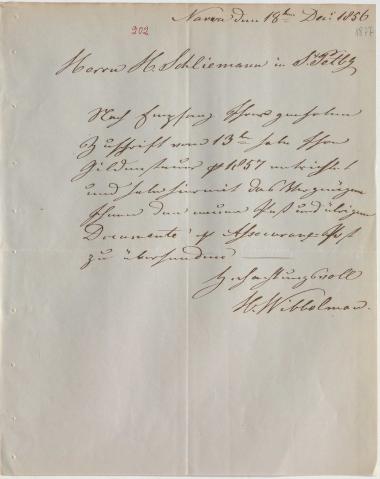 Narva den 18ten Decr 1856
202
1877
Herrn H. Schliemann in St. Petbg
Nach Empfang Ihrer geehrten
Zuschrift vom 13ten habe Ihre
Gildensteuer p 1857 entrichtet
und habe hiermit das Vergnügen
Ihnen den neuen Paß und übrigen
Documente p Assecuranz-Post
zu übersenden
Hochachtungsvoll
H. Wibbelman.